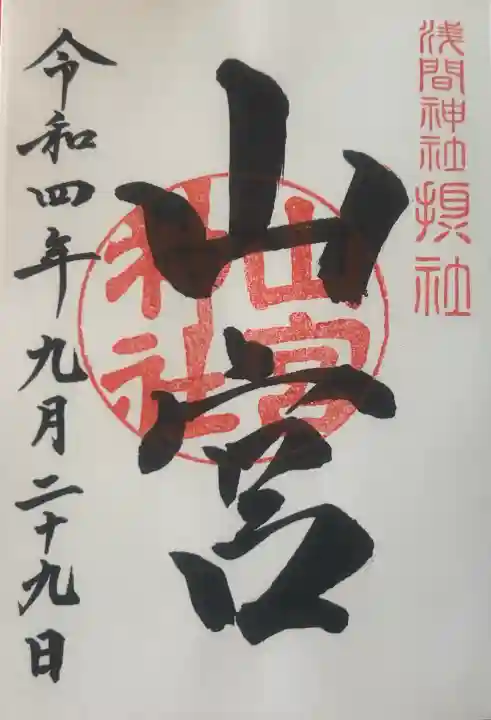 浅間神社摂社
山宮
山宮神社
令和四年九月二十九日